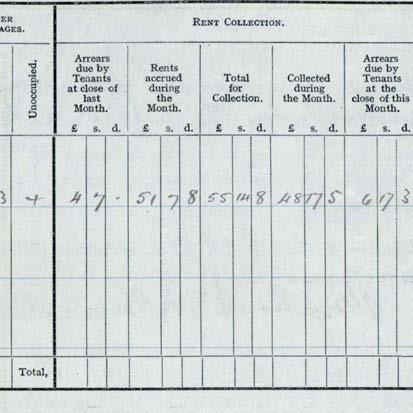 ER
AGES.
RENT COLLECTION.
Unoccupied.
Arrears due by Tenants at close of last Month.
Rents accrued during the Month.
Total for Collection.
Collected during the Month.
Arrears due by Tenants at the close of this Month.
£ s. d. £ s. d. £ s. d. £ s. d. £ s. d.
3 + 4 7 - 51 7 8 55 14 8 48 17 5 6 17 3
Total,